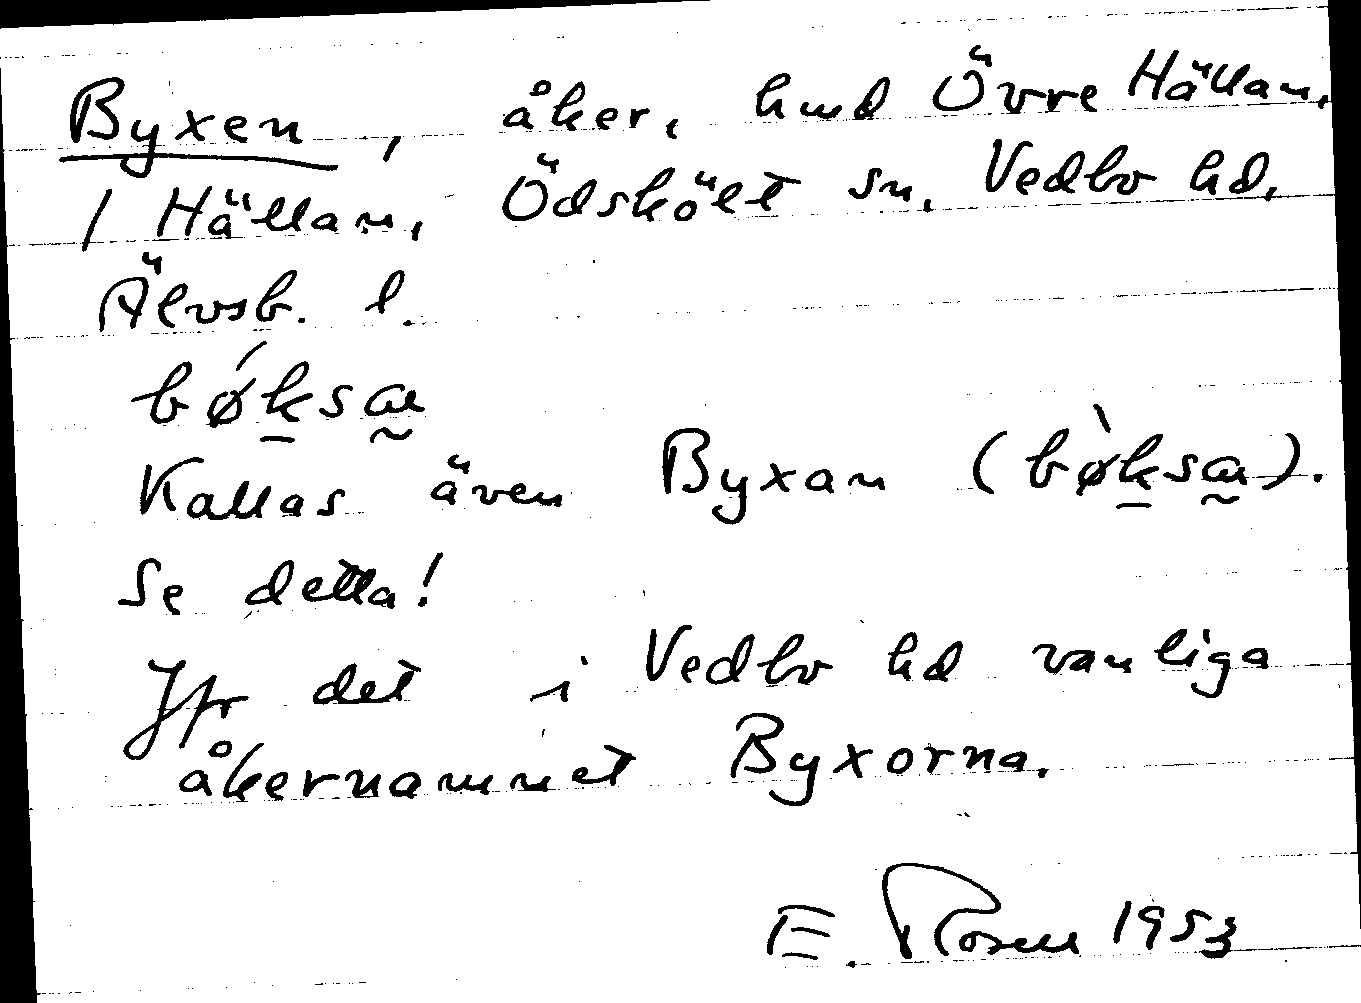 Byxen, åker, hmd Övre Hällan,
1 Hällan, Ödskölt sn, Vedbo hd,
Älvsb. l.
bǿksæ
Kallas även Byxan (bø̀ksæ).
Se detta!
Jfr det i Vedbo hd vanliga
åkernamnet Byxorna.
E. Rosell 1953